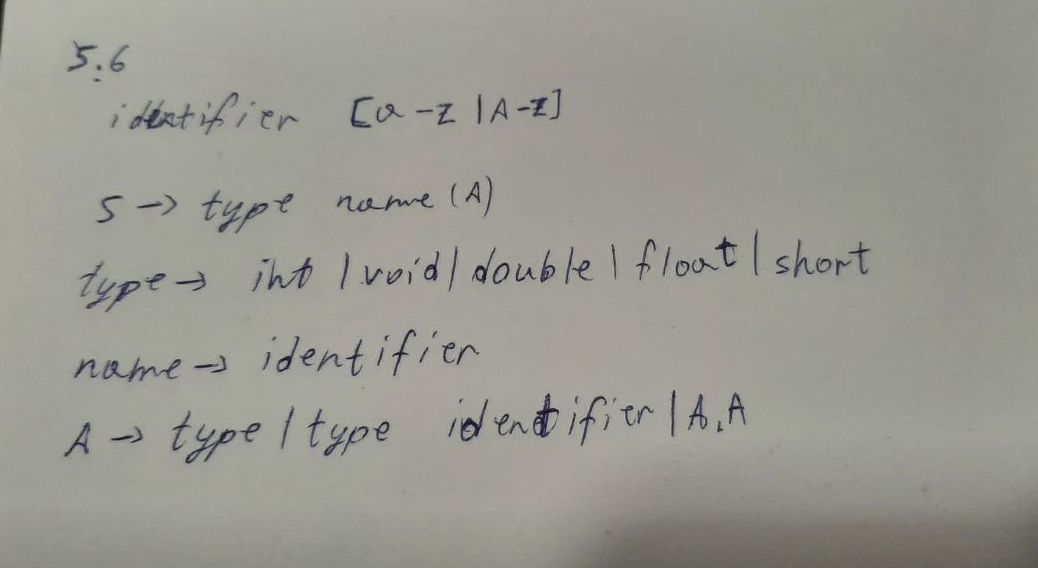 5.6
identifier [a-z|A-Z]
S → type name (A)
type → int | void | double | float | short
name → identifier
A → type | type identifier | A,A